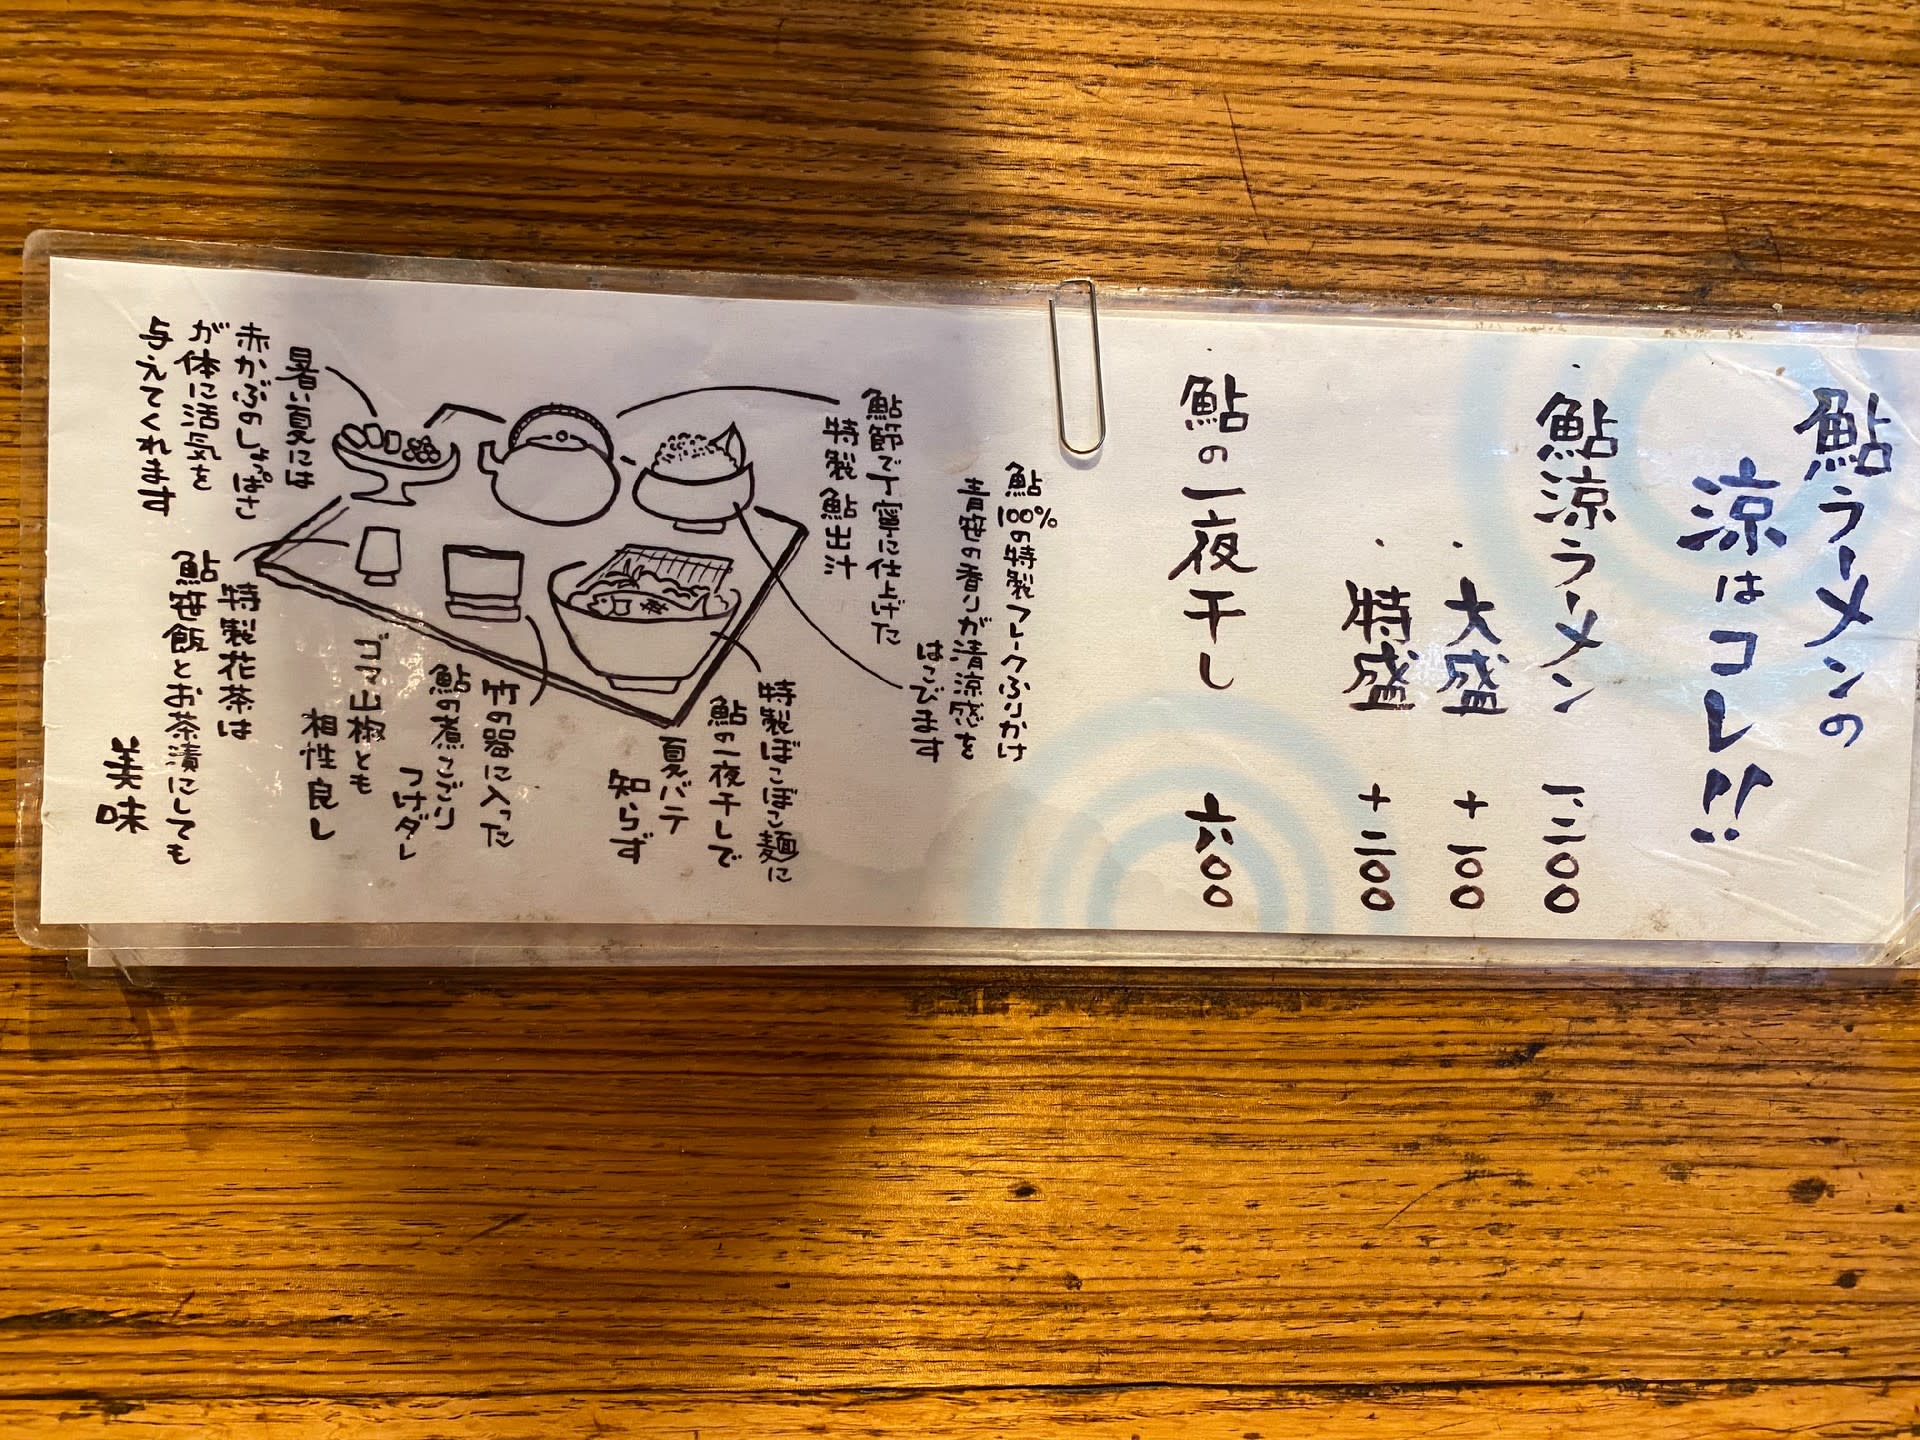 鮎ラーメンの
涼はコレ!!
・鮎涼ラーメン 一、二〇〇
・大盛 +一〇〇
・特盛 +二〇〇
・鮎の一夜干し 六〇〇
鮎100%の特製フレークふりかけ
青笹の香りが清涼感を
はこびます
鮎節で丁寧に仕上げた
特製鮎出汁
特製ぼこぼこ麺に
鮎の一夜干しで
夏バテ
知らず
竹の器に入った
鮎の煮こごり
つけダレ
ゴマ山椒とも
相性良し
暑い夏には
赤かぶのしょっぱさ
が体に活気を
与えてくれます
特製花茶は
鮎笹飯とお茶漬にしても
美味